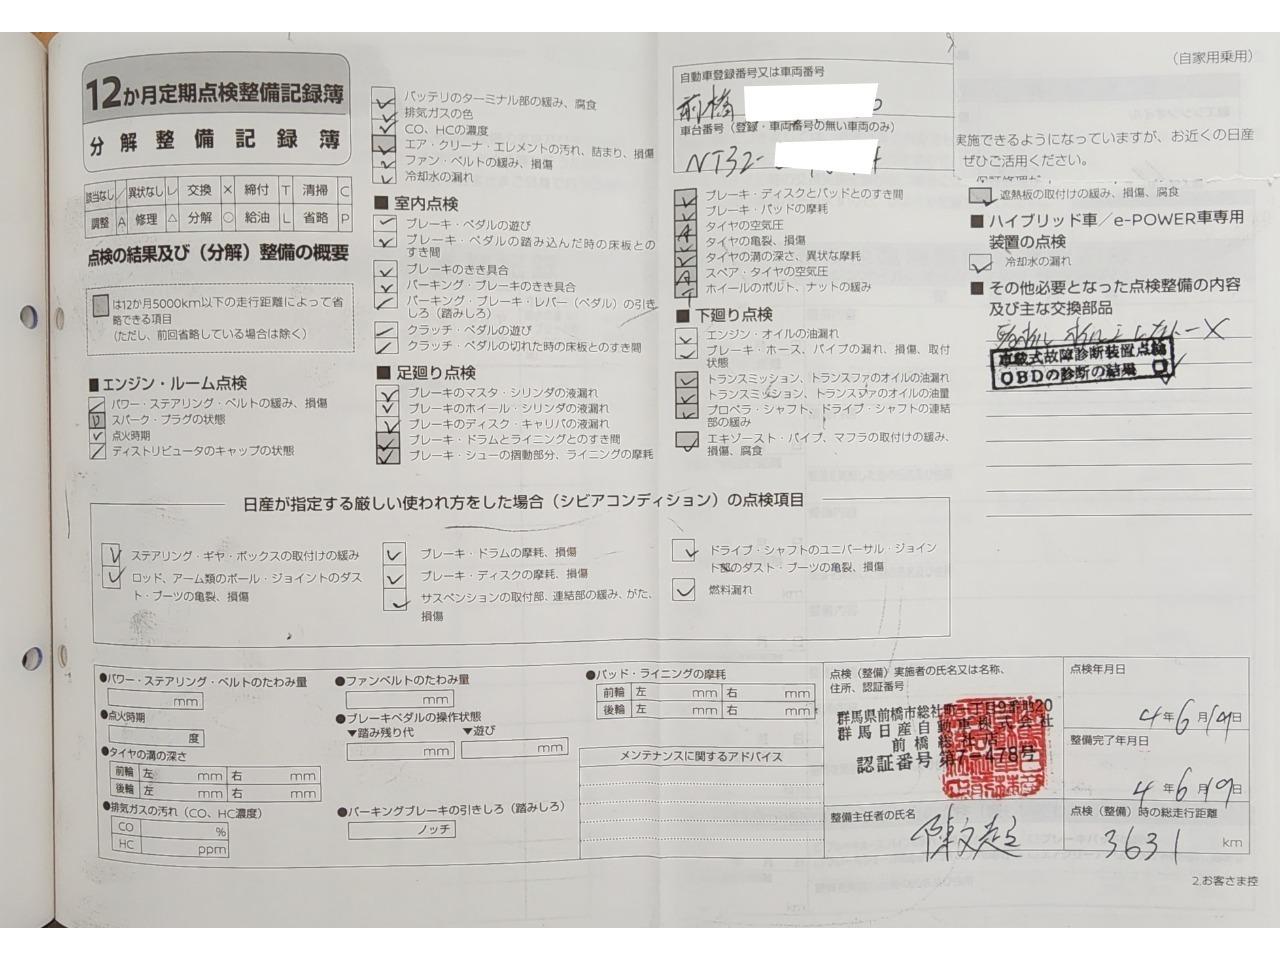 12か月定期点検整備記録簿
分解整備記録簿
（自家用乗用）
該当なし ／ 異状なし レ 交換 × 締付 T 清掃 C
調整 A 修理 △ 分解 ○ 給油 L 省略 P
点検の結果及び（分解）整備の概要
は12か月5000km以下の走行距離によって省
略できる項目
（ただし、前回省略している場合は除く）
■エンジン・ルーム点検
パワー・ステアリング・ベルトの緩み、損傷
スパーク・プラグの状態
点火時期
ディストリビュータのキャップの状態
バッテリのターミナル部の緩み、腐食
排気ガスの色
CO、HCの濃度
エア・クリーナ・エレメントの汚れ、詰まり、損傷
ファン・ベルトの緩み、損傷
冷却水の漏れ
■室内点検
ブレーキ・ペダルの遊び
ブレーキ・ペダルの踏み込んだ時の床板との
すき間
ブレーキのきき具合
パーキング・ブレーキのきき具合
パーキング・ブレーキ・レバー（ペダル）の引き
しろ（踏みしろ）
クラッチ・ペダルの遊び
クラッチ・ペダルの切れた時の床板とのすき間
■足廻り点検
ブレーキのマスタ・シリンダの液漏れ
ブレーキのホイール・シリンダの液漏れ
ブレーキのディスク・キャリパの液漏れ
ブレーキ・ドラムとライニングとのすき間
ブレーキ・シューの摺動部分、ライニングの摩耗
自動車登録番号又は車両番号
前橋
車台番号（登録・車両番号の無い車両のみ）
NT32-
ブレーキ・ディスクとパッドとのすき間
ブレーキ・パッドの摩耗
A タイヤの空気圧
タイヤの亀裂、損傷
タイヤの溝の深さ、異状な摩耗
A スペア・タイヤの空気圧
T ホイールのボルト、ナットの緩み
■下廻り点検
エンジン・オイルの油漏れ
ブレーキ・ホース、パイプの漏れ、損傷、取付
状態
トランスミッション、トランスファのオイルの油漏れ
トランスミッション、トランスファのオイルの油量
プロペラ・シャフト、ドライブ・シャフトの連結
部の緩み
エキゾースト・パイプ、マフラの取付けの緩み、
損傷、腐食
実施できるようになっていますが、お近くの日産
ぜひご活用ください。
遮熱板の取付けの緩み、損傷、腐食
■ハイブリッド車／e-POWER車専用
装置の点検
冷却水の漏れ
■その他必要となった点検整備の内容
及び主な交換部品
車載式故障診断装置点検
OBDの診断の結果
日産が指定する厳しい使われ方をした場合（シビアコンディション）の点検項目
ステアリング・ギヤ・ボックスの取付けの緩み
ロッド、アーム類のボール・ジョイントのダス
ト・ブーツの亀裂、損傷
ブレーキ・ドラムの摩耗、損傷
ブレーキ・ディスクの摩耗、損傷
サスペンションの取付部、連結部の緩み、がた、
損傷
ドライブ・シャフトのユニバーサル・ジョイン
ト部のダスト・ブーツの亀裂、損傷
燃料漏れ
●パワー・ステアリング・ベルトのたわみ量
mm
●点火時期
度
●タイヤの溝の深さ
前輪 左 mm 右 mm
後輪 左 mm 右 mm
●排気ガスの汚れ（CO、HC濃度）
CO %
HC ppm
●ファンベルトのたわみ量
mm
●ブレーキペダルの操作状態
▼踏み残り代 ▼遊び
mm mm
●パーキングブレーキの引きしろ（踏みしろ）
ノッチ
●パッド・ライニングの摩耗
前輪 左 mm 右 mm
後輪 左 mm 右 mm
メンテナンスに関するアドバイス
点検（整備）実施者の氏名又は名称、
住所、認証番号
群馬県前橋市総社町一丁目9番地20
群馬日産自動車株式会社
前橋総社店
認証番号 第7-478号
整備主任者の氏名
点検年月日
4年6月19日
整備完了年月日
4年6月19日
点検（整備）時の総走行距離
3631 km
2.お客さま控